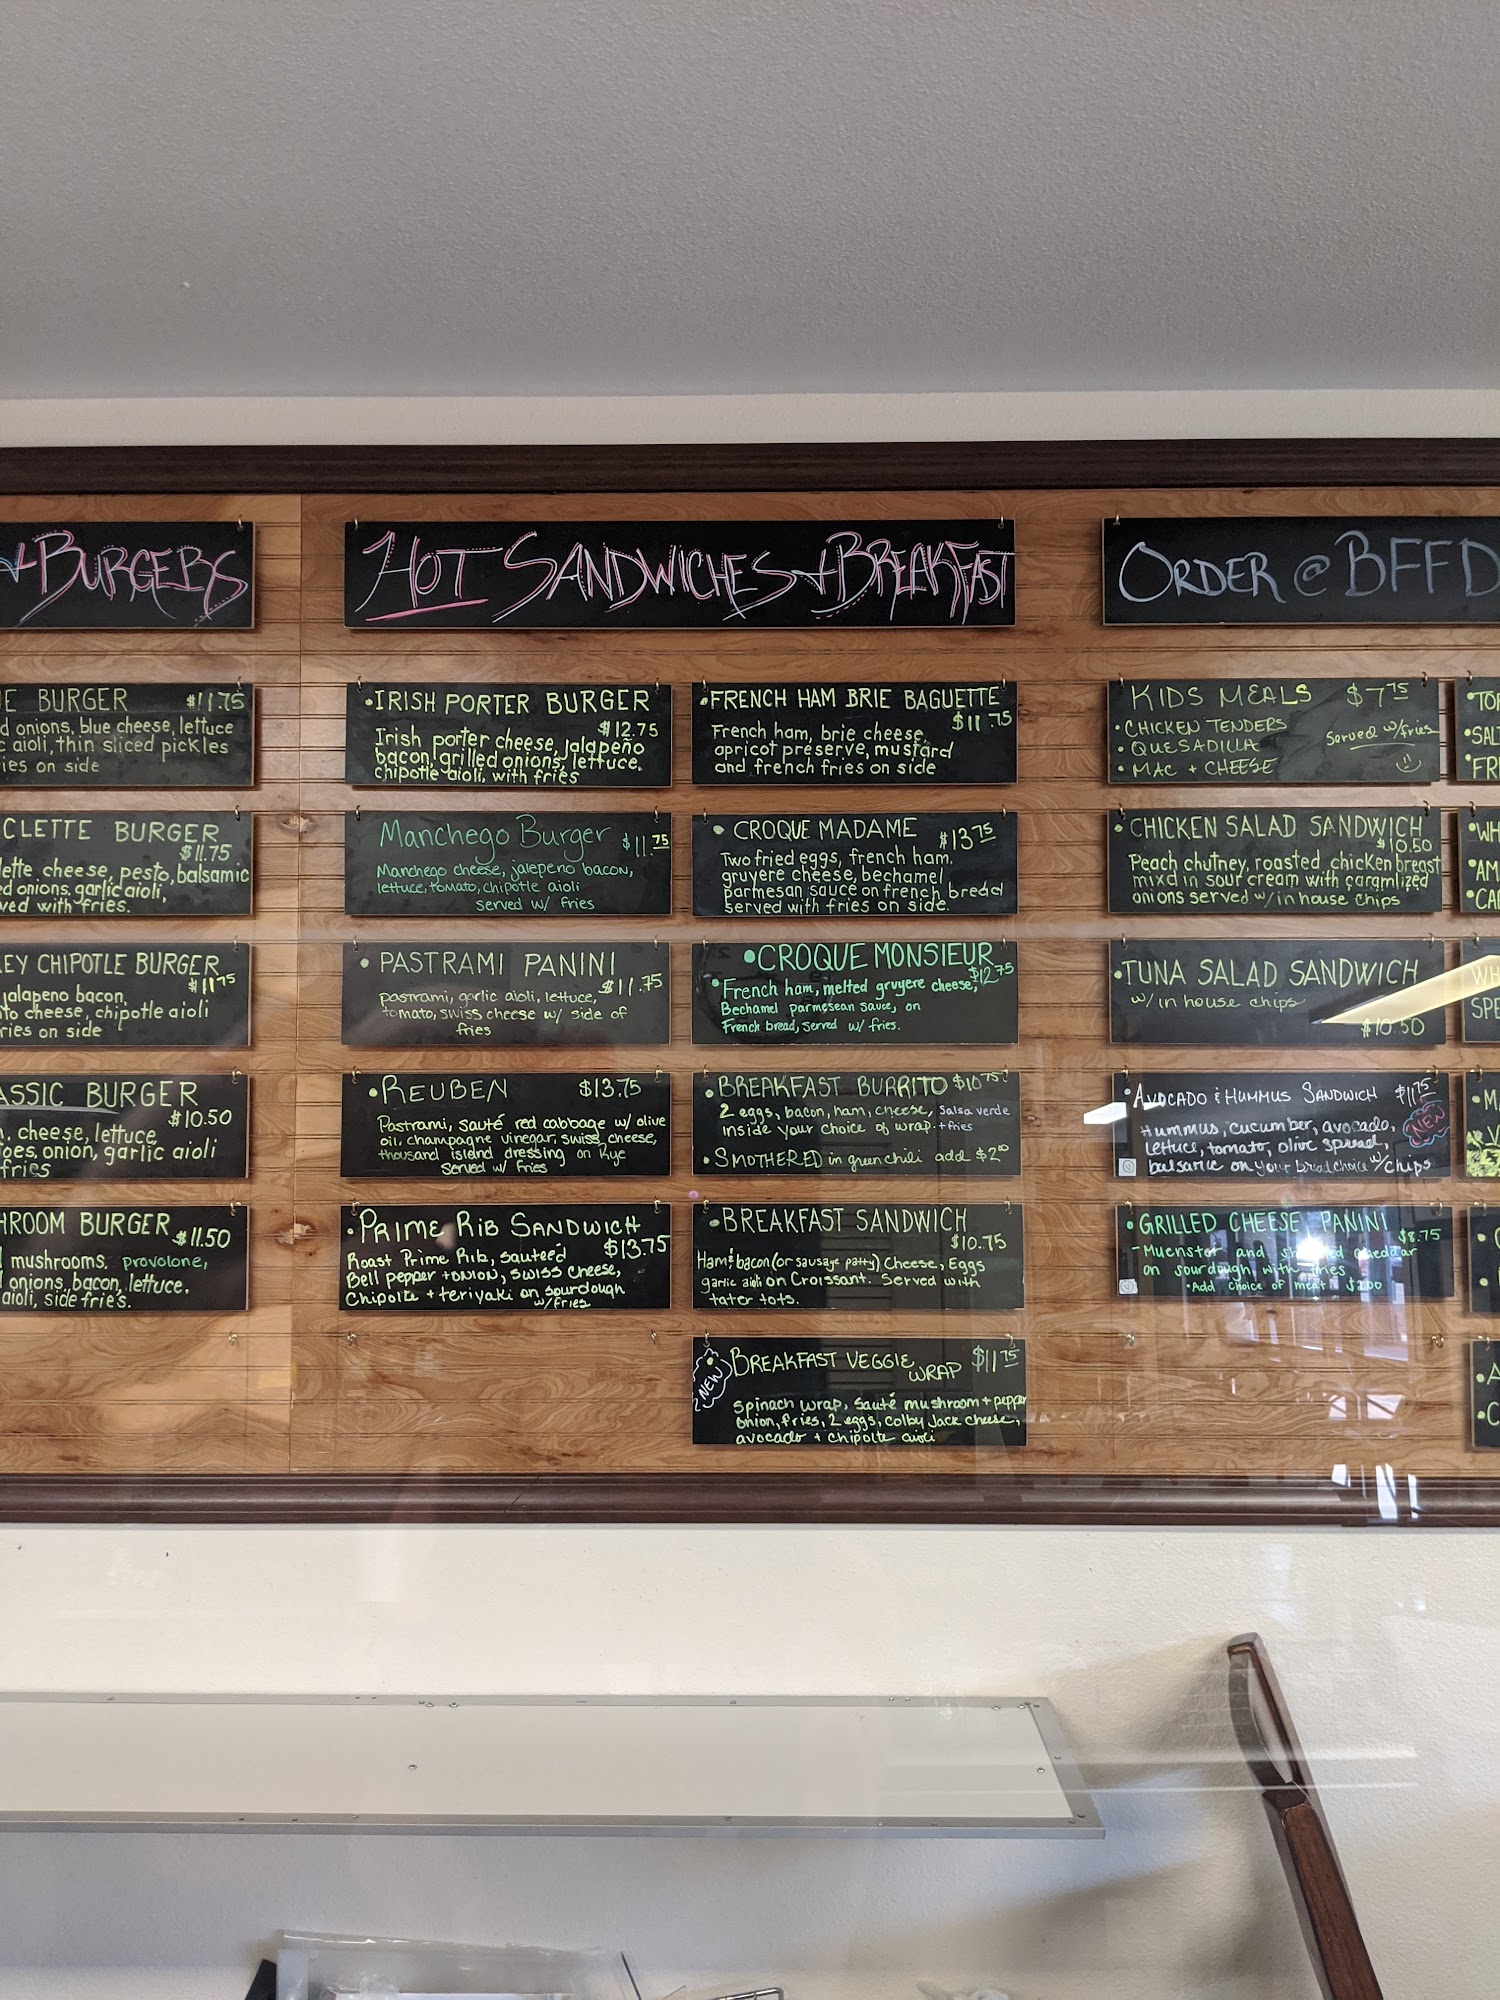 + BURGERS
E BURGER $11.75
d onions, blue cheese, lettuce
c aioli, thin sliced pickles
ies on side
CLETTE BURGER
$11.75
lette cheese, pesto, balsamic
ed onions, garlic aioli,
ved with fries.
EY CHIPOTLE BURGER
$11.75
jalapeno bacon,
to cheese, chipotle aioli
ries on side
ASSIC BURGER
$10.50
, cheese, lettuce,
oes, onion, garlic aioli
fries
HROOM BURGER $11.50
mushrooms. provolone,
onions, bacon, lettuce,
aioli, side fries.
HOT SANDWICHES + BREAKFAST
• IRISH PORTER BURGER
$12.75
Irish porter cheese, jalapeño
bacon, grilled onions, lettuce,
chipotle aioli, with fries
Manchego Burger $11.75
Manchego cheese, jalepeno bacon,
lettuce, tomato, chipotle aioli
served w/ fries
• PASTRAMI PANINI
$11.75
pastrami, garlic aioli, lettuce,
tomato, swiss cheese w/ side of
fries
• REUBEN $13.75
Pastrami, sauté red cabbage w/ olive
oil, champagne vinegar, swiss cheese,
thousand island dressing on Rye
Served w/ fries
• PRIME RIB SANDWICH
$13.75
Roast Prime Rib, sauteed
Bell pepper + onion, swiss cheese,
Chipolte + teriyaki on sourdough
w/fries
• FRENCH HAM BRIE BAGUETTE
$11.75
French ham, brie cheese,
apricot preserve, mustard
and french fries on side
• CROQUE MADAME $13.75
Two fried eggs, french ham,
gruyere cheese, bechamel
parmesan sauce on french bread
served with fries on side.
• CROQUE MONSIEUR
$12.75
• French ham, melted gruyere cheese,
Bechamel parmesean sauce, on
French bread, served w/ fries.
• BREAKFAST BURRITO $10.75
2 eggs, bacon, ham, cheese, Salsa verde
inside your choice of wrap. + fries
• SMOTHERED in green chili add $2.00
• BREAKFAST SANDWICH
$10.75
Ham & bacon (or sausage patty) Cheese, Eggs
garlic aioli on Croissant. Served with
tater tots.
NEW
• BREAKFAST VEGGIE WRAP $11.75
Spinach wrap, sauté mushroom + pepper
onion, fries, 2 eggs, colby Jack cheese,
avocado + chipolte aioli
ORDER @ BFFD
• KIDS MEALS $7.75
• CHICKEN TENDERS
• QUESADILLA Served w/fries
• MAC + CHEESE
• CHICKEN SALAD SANDWICH
$10.50
Peach chutney, roasted chicken breast
mixd in sour cream with caramlized
onions served w/ in house chips
• TUNA SALAD SANDWICH
w/ in house chips
$10.50
• AVOCADO & HUMMUS SANDWICH $11.75
NEW
Hummus, cucumber, avocado,
lettuce, tomato, olive spread,
balsamic on your bread choice w/ chips
V
• GRILLED CHEESE PANINI
$8.75
- Muenster and cheddar
on sourdough with fries
• Add choice of meat $2.00
V
• TOR
• SAL
• FRE
• WH
• AM
• CA
WH
SPE